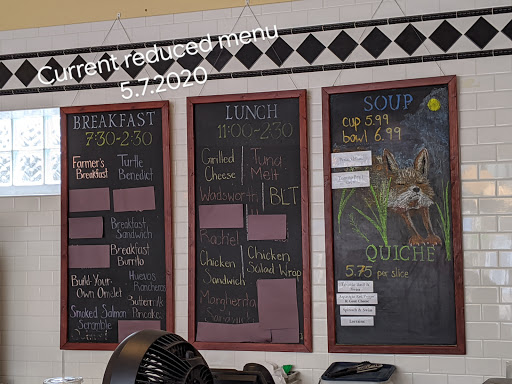 Current reduced menu
5.7.2020
BREAKFAST
7:30-2:30
Farmer's
Breakfast
Turtle
Benedict
Breakfast
Sandwich
Breakfast
Burrito
Build-Your-
Own Omelet
Huevos
Rancheros
Smoked Salmon
Scramble
Buttermilk
Pancake
LUNCH
11:00-2:30
Grilled
Cheese
Tuna
Melt
Wadsworth
BLT
Rachel
Chicken
Sandwich
Chicken
Salad Wrap
Margherita
Sandwich
SOUP
cup 5.99
bowl 6.99
QUICHE
5.75 per slice